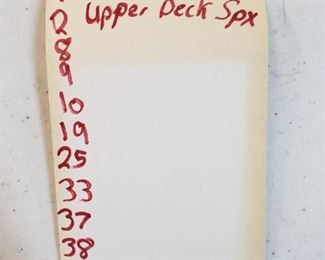 Upper Deck Spx
2
8
9
10
19
25
33
37
38